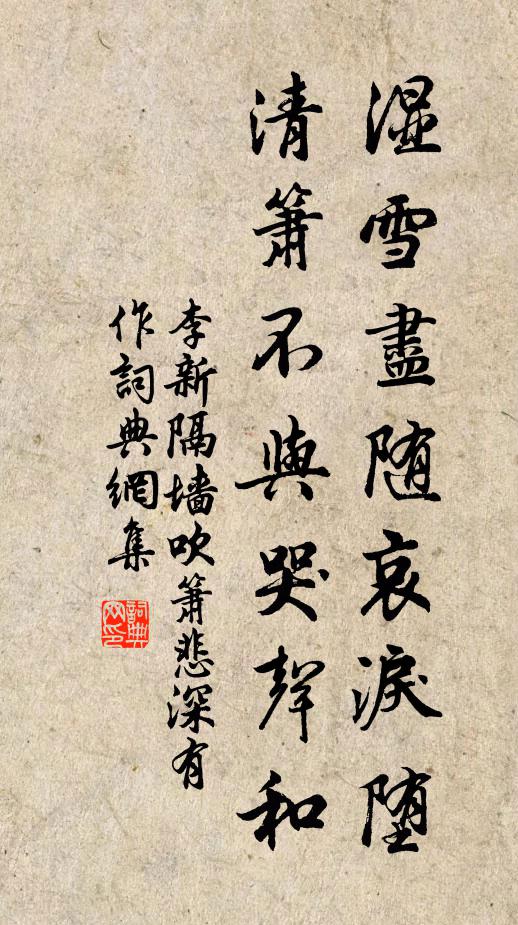 湿雪盡随哀淚堕
清簫不與哭聲和
李新隔墙吹簫悲深有
作詞典網集
詞典
网印